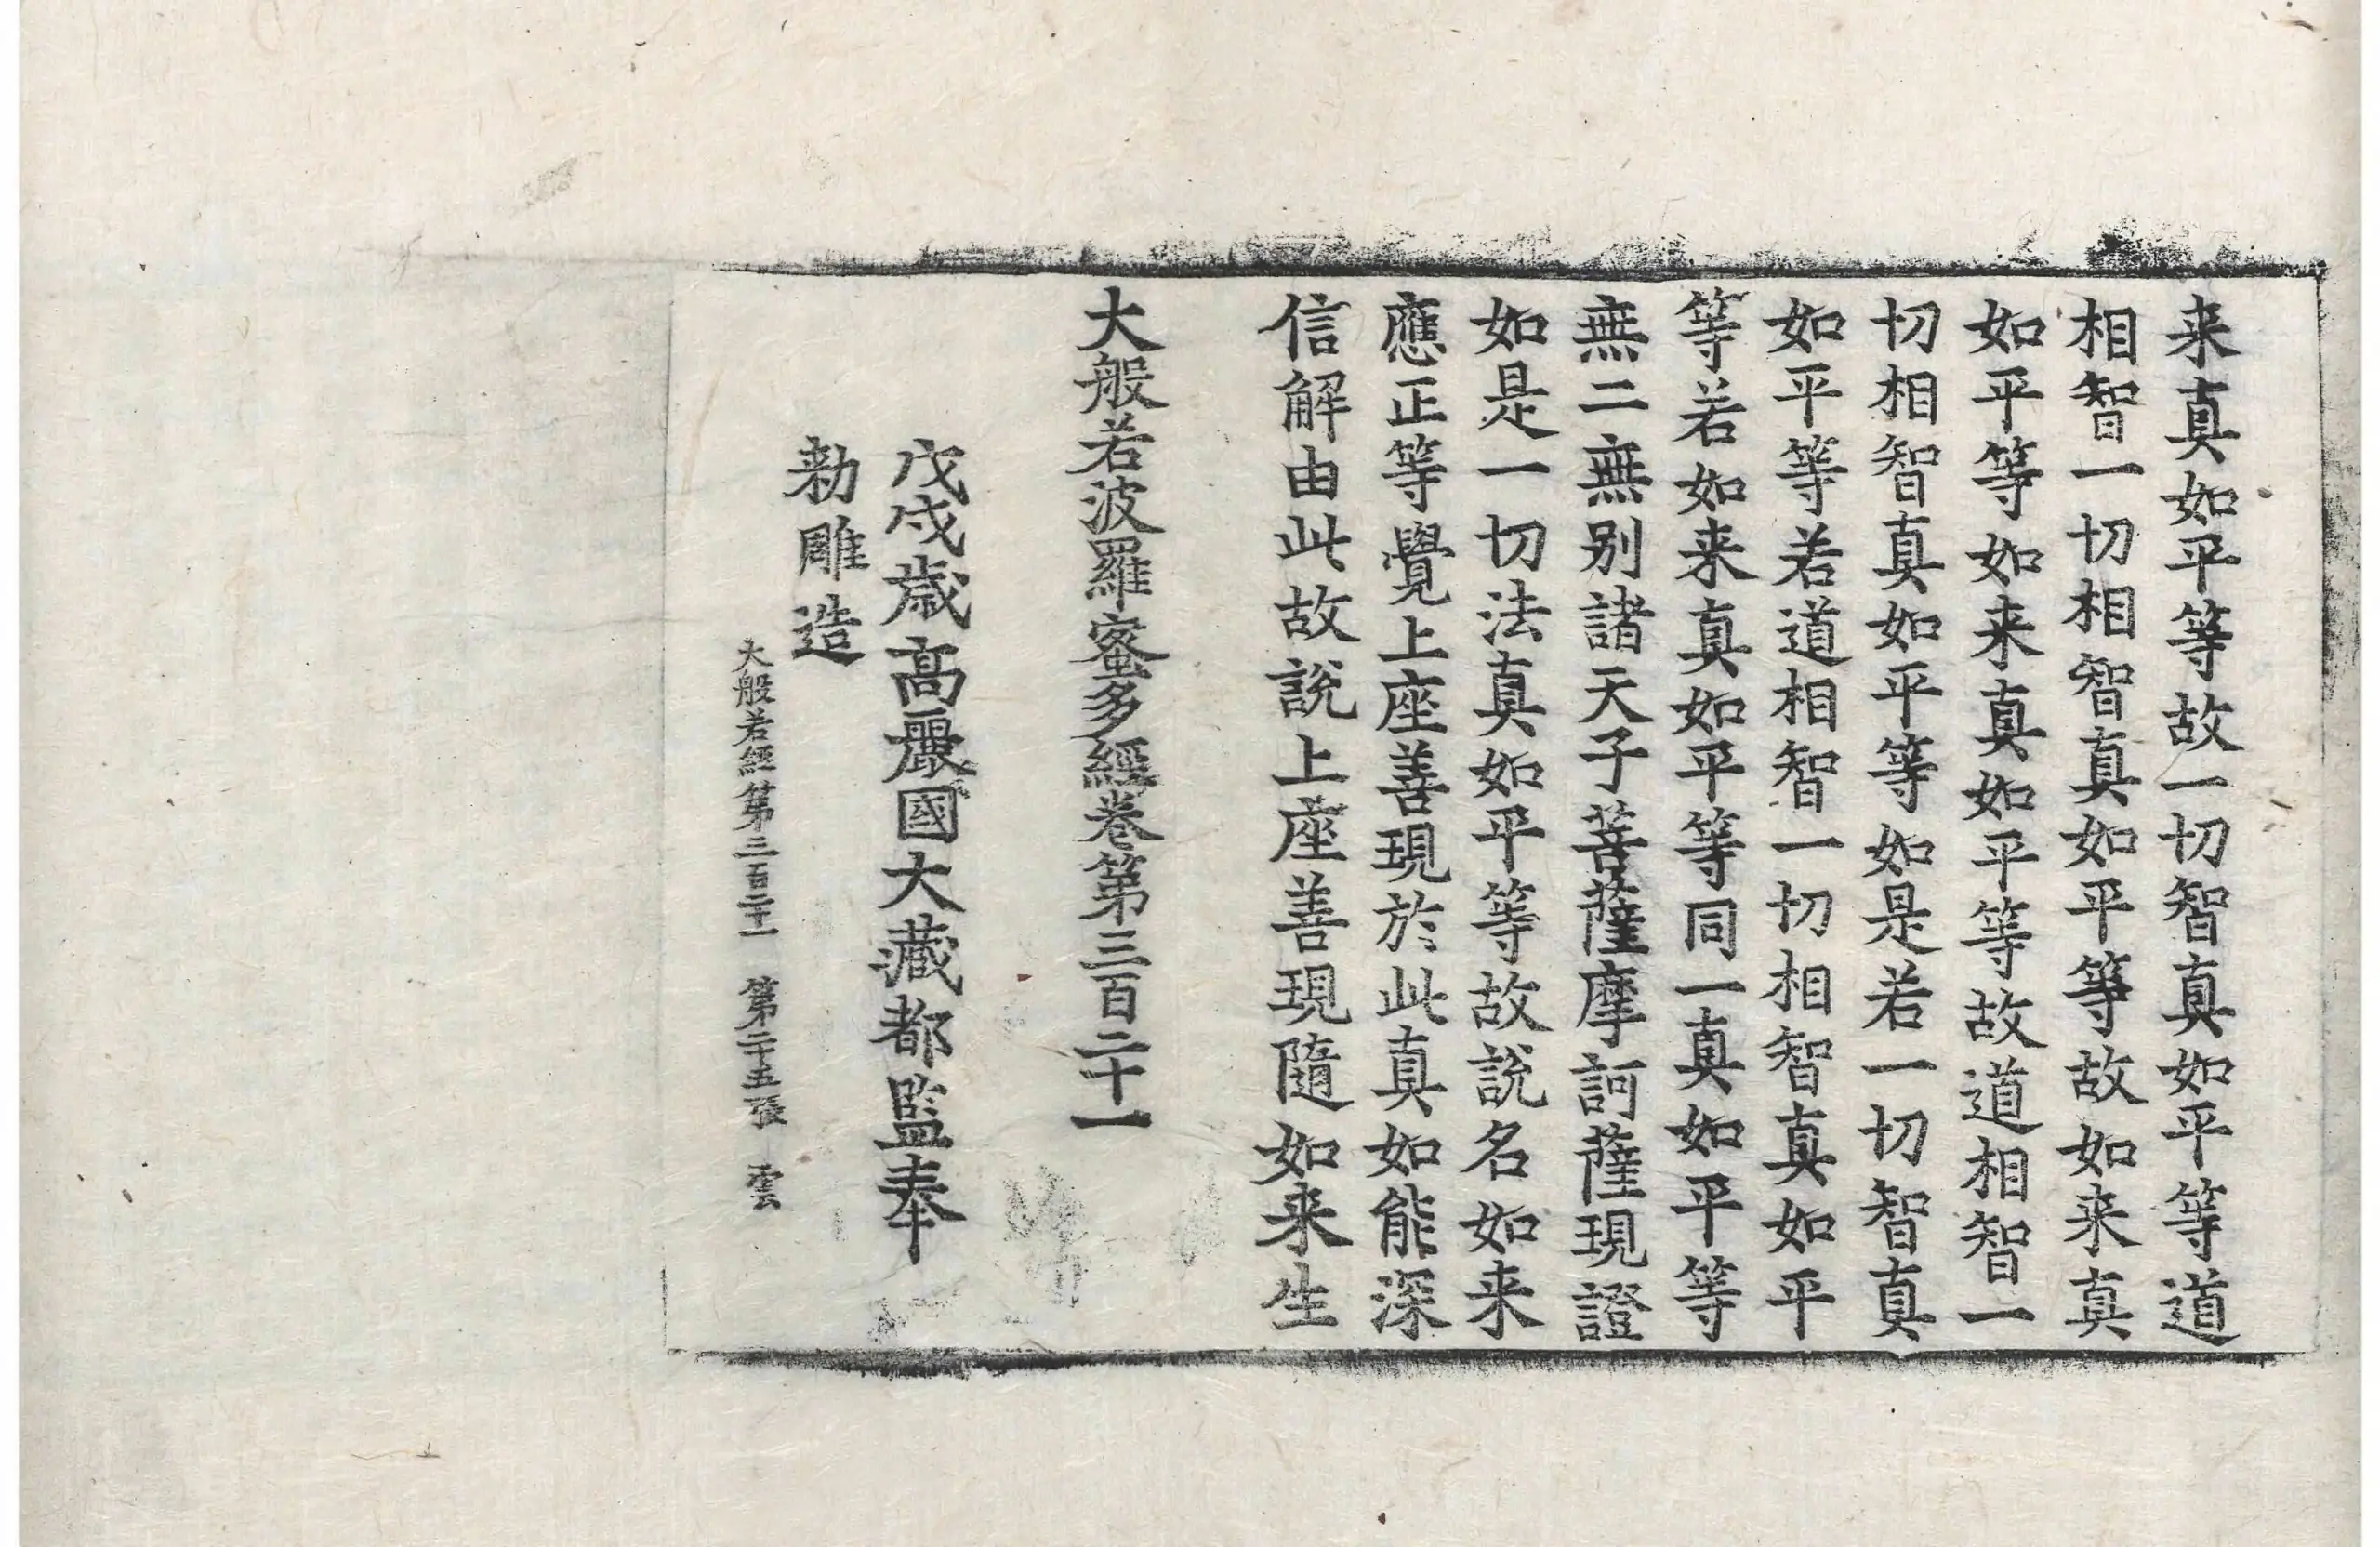 来真如平等故一切智真如平等道
相智一切相智真如平等故如来真
如平等如来真如平等故道相智一
切相智真如平等如是若一切智真
如平等若道相智一切相智真如平
等若如来真如平等同一真如平等
無二無别諸天子菩薩摩訶薩現證
如是一切法真如平等故說名如来
應正等覺上座善現於此真如能深
信解由此故說上座善現隨如来生
大般若波羅蜜多經卷第三百二十一
戊戌歲高麗國大藏都監奉
勑雕造
大般若經第三百二十一 第二十五張 雲